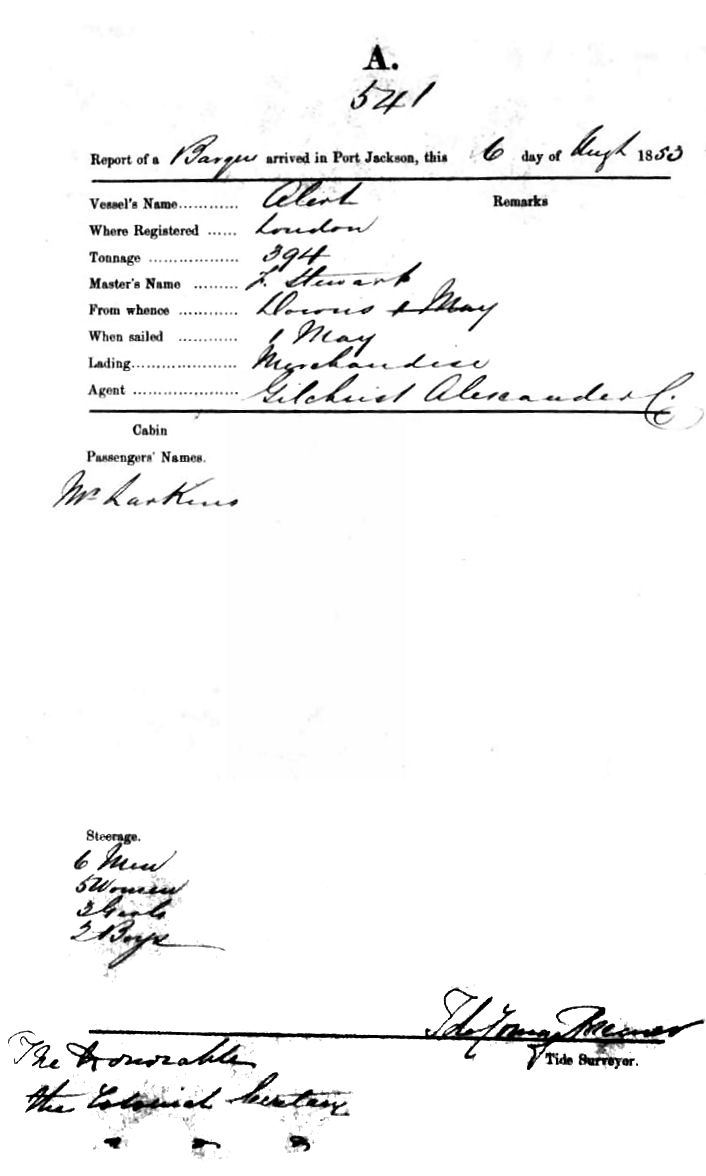 A.
541
Report of a Barque arrived in Port Jackson, this 6 day of Augt 1853
Vessel's Name............ Alert Remarks
Where Registered ...... London
Tonnage .................. 394
Master's Name ......... Stewart
From whence ............ Downs 1 May
When sailed ............ 1 May
Lading..................... Merchandise
Agent ..................... Gilchrist Alexander & C.
Cabin
Passengers' Names.
Mr Larkins
Steerage.
6 Men
5 Women
3 Girls
Boys
Tide Surveyor.
The Honorable
the Colonial Secretary